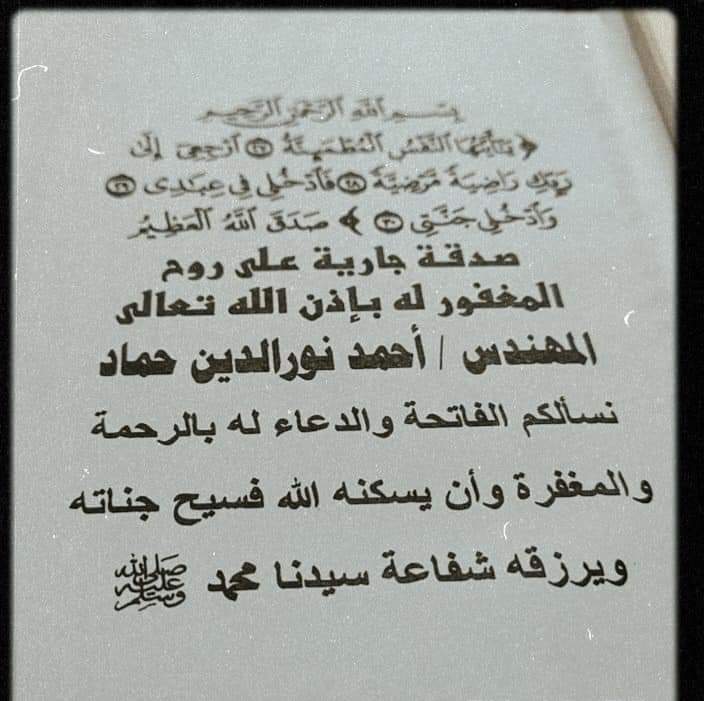 بسم الله الرحمن الرحيم
﴿ يَا أَيَّتُهَا النَّفْسُ الْمُطْمَئِنَّةُ ٢٧ ارْجِعِي إِلَىٰ
رَبِّكِ رَاضِيَةً مَرْضِيَّةً ٢٨ فَادْخُلِي فِي عِبَادِي ٢٩
وَادْخُلِي جَنَّتِي ٣٠ ﴾ صَدَقَ اللَّهُ الْعَظِيمُ
صدقة جارية على روح
المغفور له بإذن الله تعالى
المهندس / أحمد نورالدين حماد
نسألكم الفاتحة والدعاء له بالرحمة
والمغفرة وأن يسكنه الله فسيح جناته
ويرزقه شفاعة سيدنا محمد ﷺ